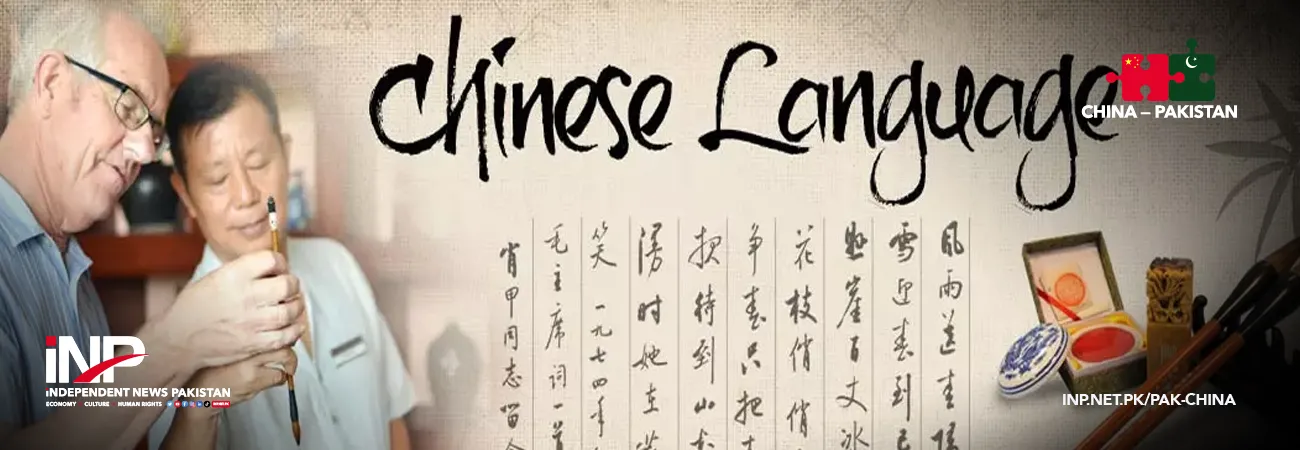 Chinese Language
CHINA – PAKISTAN
风雨送春归
雪迎春到已
悬崖百丈冰
花枝俏俏
争春只把
报待到山
烂时她在丛
笑 一九七四年
毛主席词一首
肖甲同志留念
iNP
INDEPENDENT NEWS PAKISTAN
ECONOMY CULTURE HUMAN RIGHTS
INP.NET.PK/PAK-CHINA